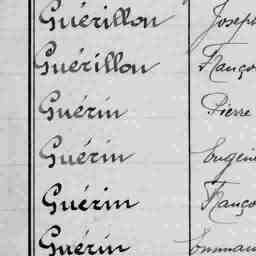 Guérillon Joseph
Guérillon Franço
Guérin Pierre
Guérin Eugène
Guérin Franço
Guérin